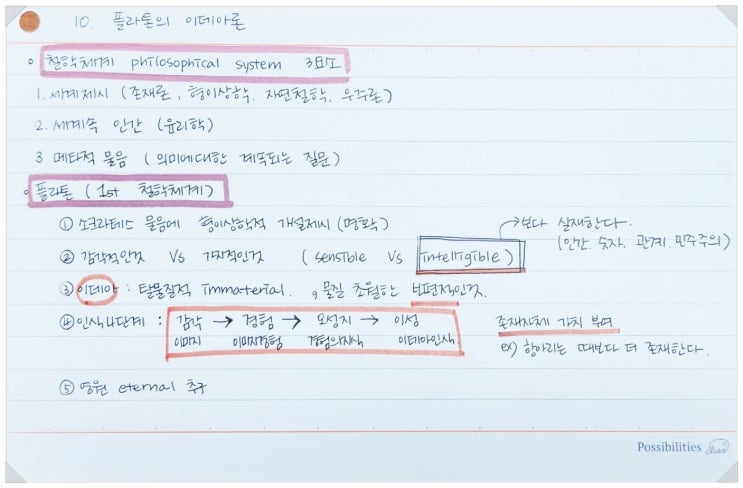 10. 플라톤의 이데아론
철학체계 philosophical system 3요소
1. 세계제시 (존재론, 형이상학. 자연철학. 우주론)
2. 세계속 인간 (윤리학)
3 메타적 물음 (의미에대한 계속되는 질문)
플라톤 (1st 철학체계)
① 소크라테스 물음에 형이상학적 개설제시 (명확)
→보다 실재한다.
② 감각적인것 VS 가지적인것 (sensible vs intelligible)
(인간. 숫자. 관계. 민주주의)
③ 이데아 : 탈물질적 immaterial. , 물질 초월하는 보편적인것.
④ 인식4단계 : 감각 → 경험 → 오성지 → 이성
이미지 이미지경험 경험의지식 이데아인식
존재자체가 가치 부여
ex) 항아리는 때보다 더 존재한다.
⑤ 영원 eternal 추구
Possibilities